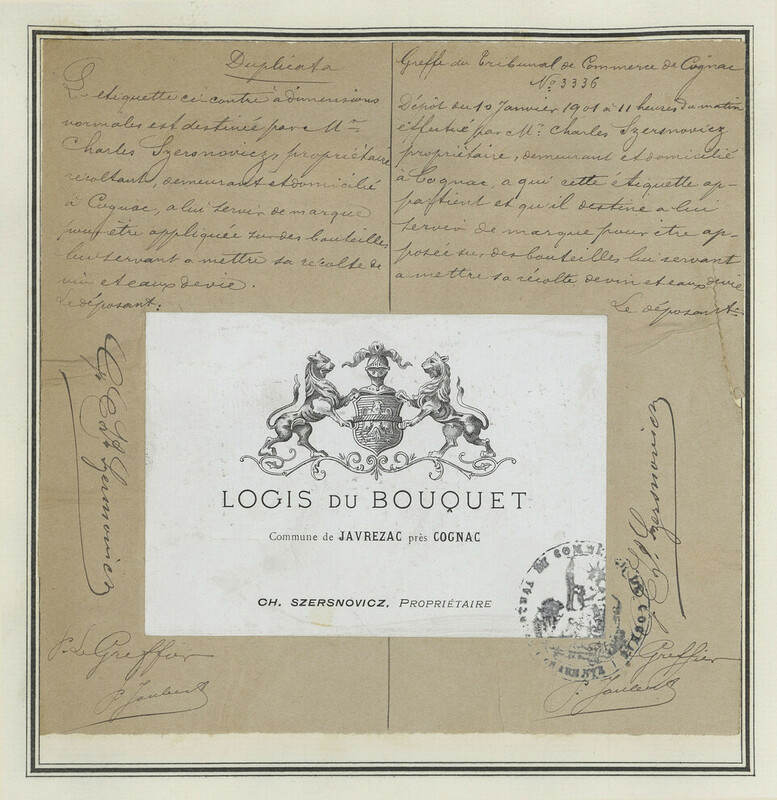 Duplicata
L'etiquette ci contre à dimensions
normales est destinée par Mr.
Charles Szersnovicz, propriétaire
récoltant, demeurant et domicilié
à Cognac, a lui servir de marque
pour être appliquée sur des bouteilles
lui servant a mettre sa récolte de
vin et eaux de vie.
Le déposant:
Greffe du Tribunal de Commerce de Cognac
No 3336
Dépôt du 10 Janvier 1901 à 11 heures du matin
effectué par Mr. Charles Szersnovicz
propriétaire, demeurant et domicilié
à Cognac, a qui cette étiquette ap-
partient et qu'il destine a lui
servir de marque pour être ap-
posée sur des bouteilles lui servant
a mettre sa récolte de vin et eaux de vie
Le déposant
Szersnovicz
LOGIS DU BOUQUET
Commune de JAVREZAC près COGNAC
CH. SZERSNOVICZ, PROPRIÉTAIRE
Szersnovicz
P. Le Greffier
P. Joubert
Greffier
P. Joubert